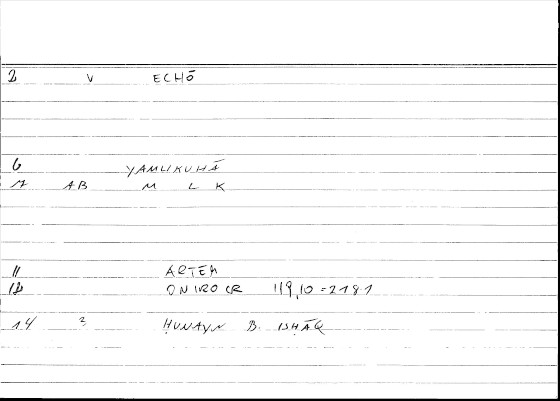 2 V ECHŌ
6 YAMLIKUHĀ
17 AB M L K
11 ARTEM
12 ONIROCR 119,10 = 2181
14 2 ḤUNAYN B. ISḤĀQ